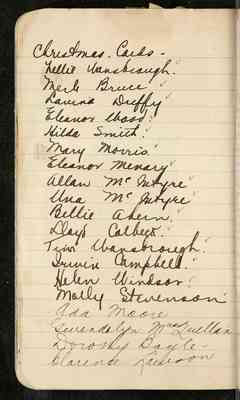 Christmas. Cards -
Nellie Vansbrough.
Merle Bruce
Lavina Duffy
Eleanor Wood
Hilda Smith.
Mary Morris
Eleanor Menary
Allan Mc Intyre
Una Mc Intyre
Bellie Ahern
Lloyd
Tim Vansborough.
Irwin Campbell.
Helen Windsor
Molly Stevenson
Ida Moore
Gwendolyn MacQuillan
Dorothy Doyle -
Clarence